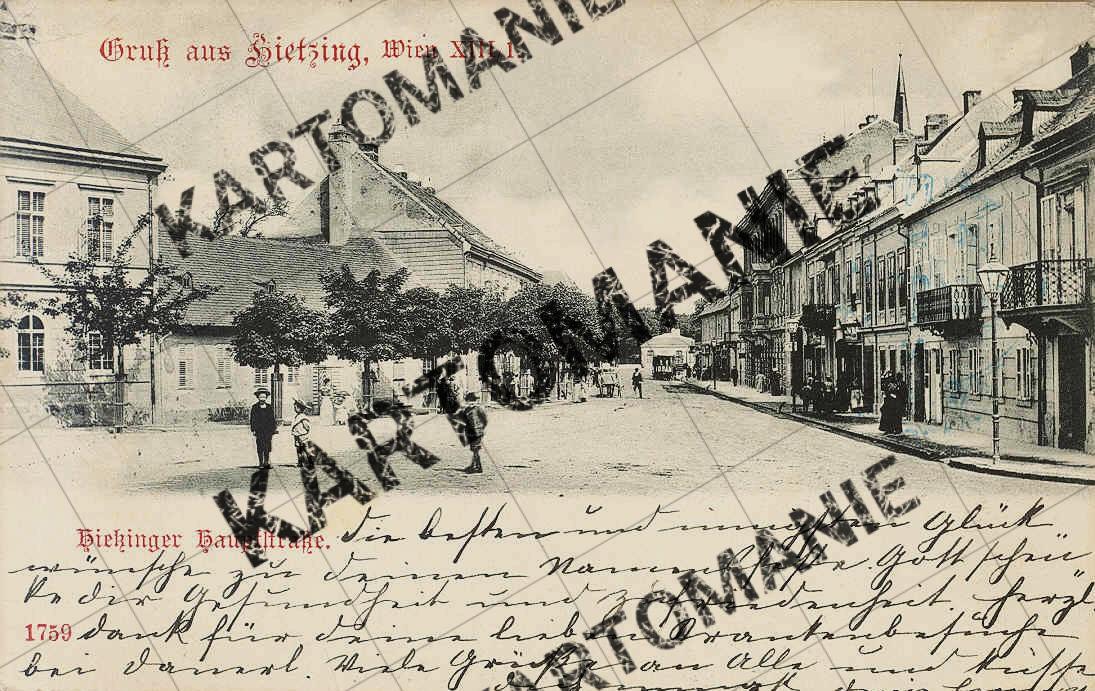 Gruß aus Hietzing, Wien XIII 1.
KARTOMANIE
KARTOMANIE
KARTOMANIE
KARTOMANIE
KARTOMANIE
Hietzinger Hauptstraße.
Die besten und innigsten Glück
wünsche zu deinem Namensfeste Gott schen
ke dir Gesundheit und Zufriedenheit. Herzl.
1759
dank für deine lieben Krankenbesuche
bei Dauerl. Viele Grüße an Alle und küsse